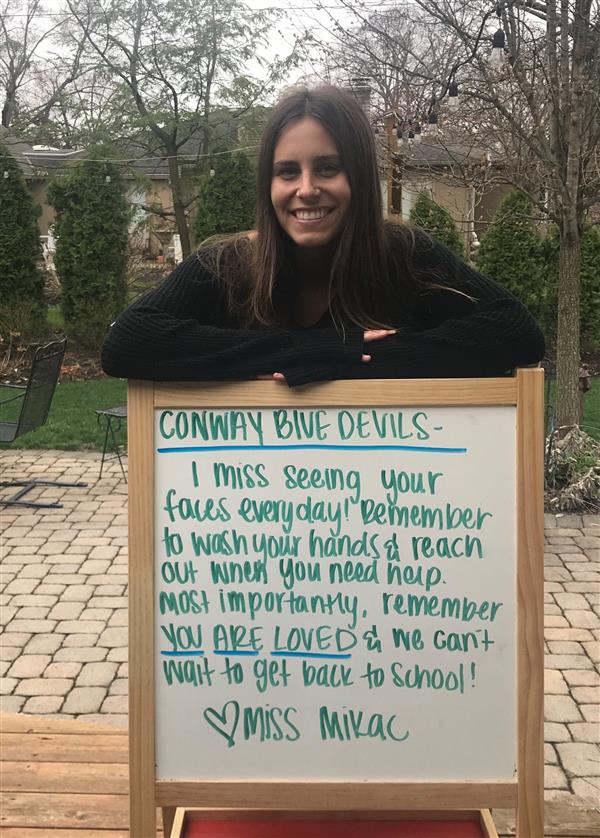 CONWAY BLUE DEVILS-
I miss seeing your
faces everyday! Remember
to wash your hands & reach
out when you need help.
Most importantly, remember
YOU ARE LOVED & we can't
wait to get back to School!
♡Miss Mikac